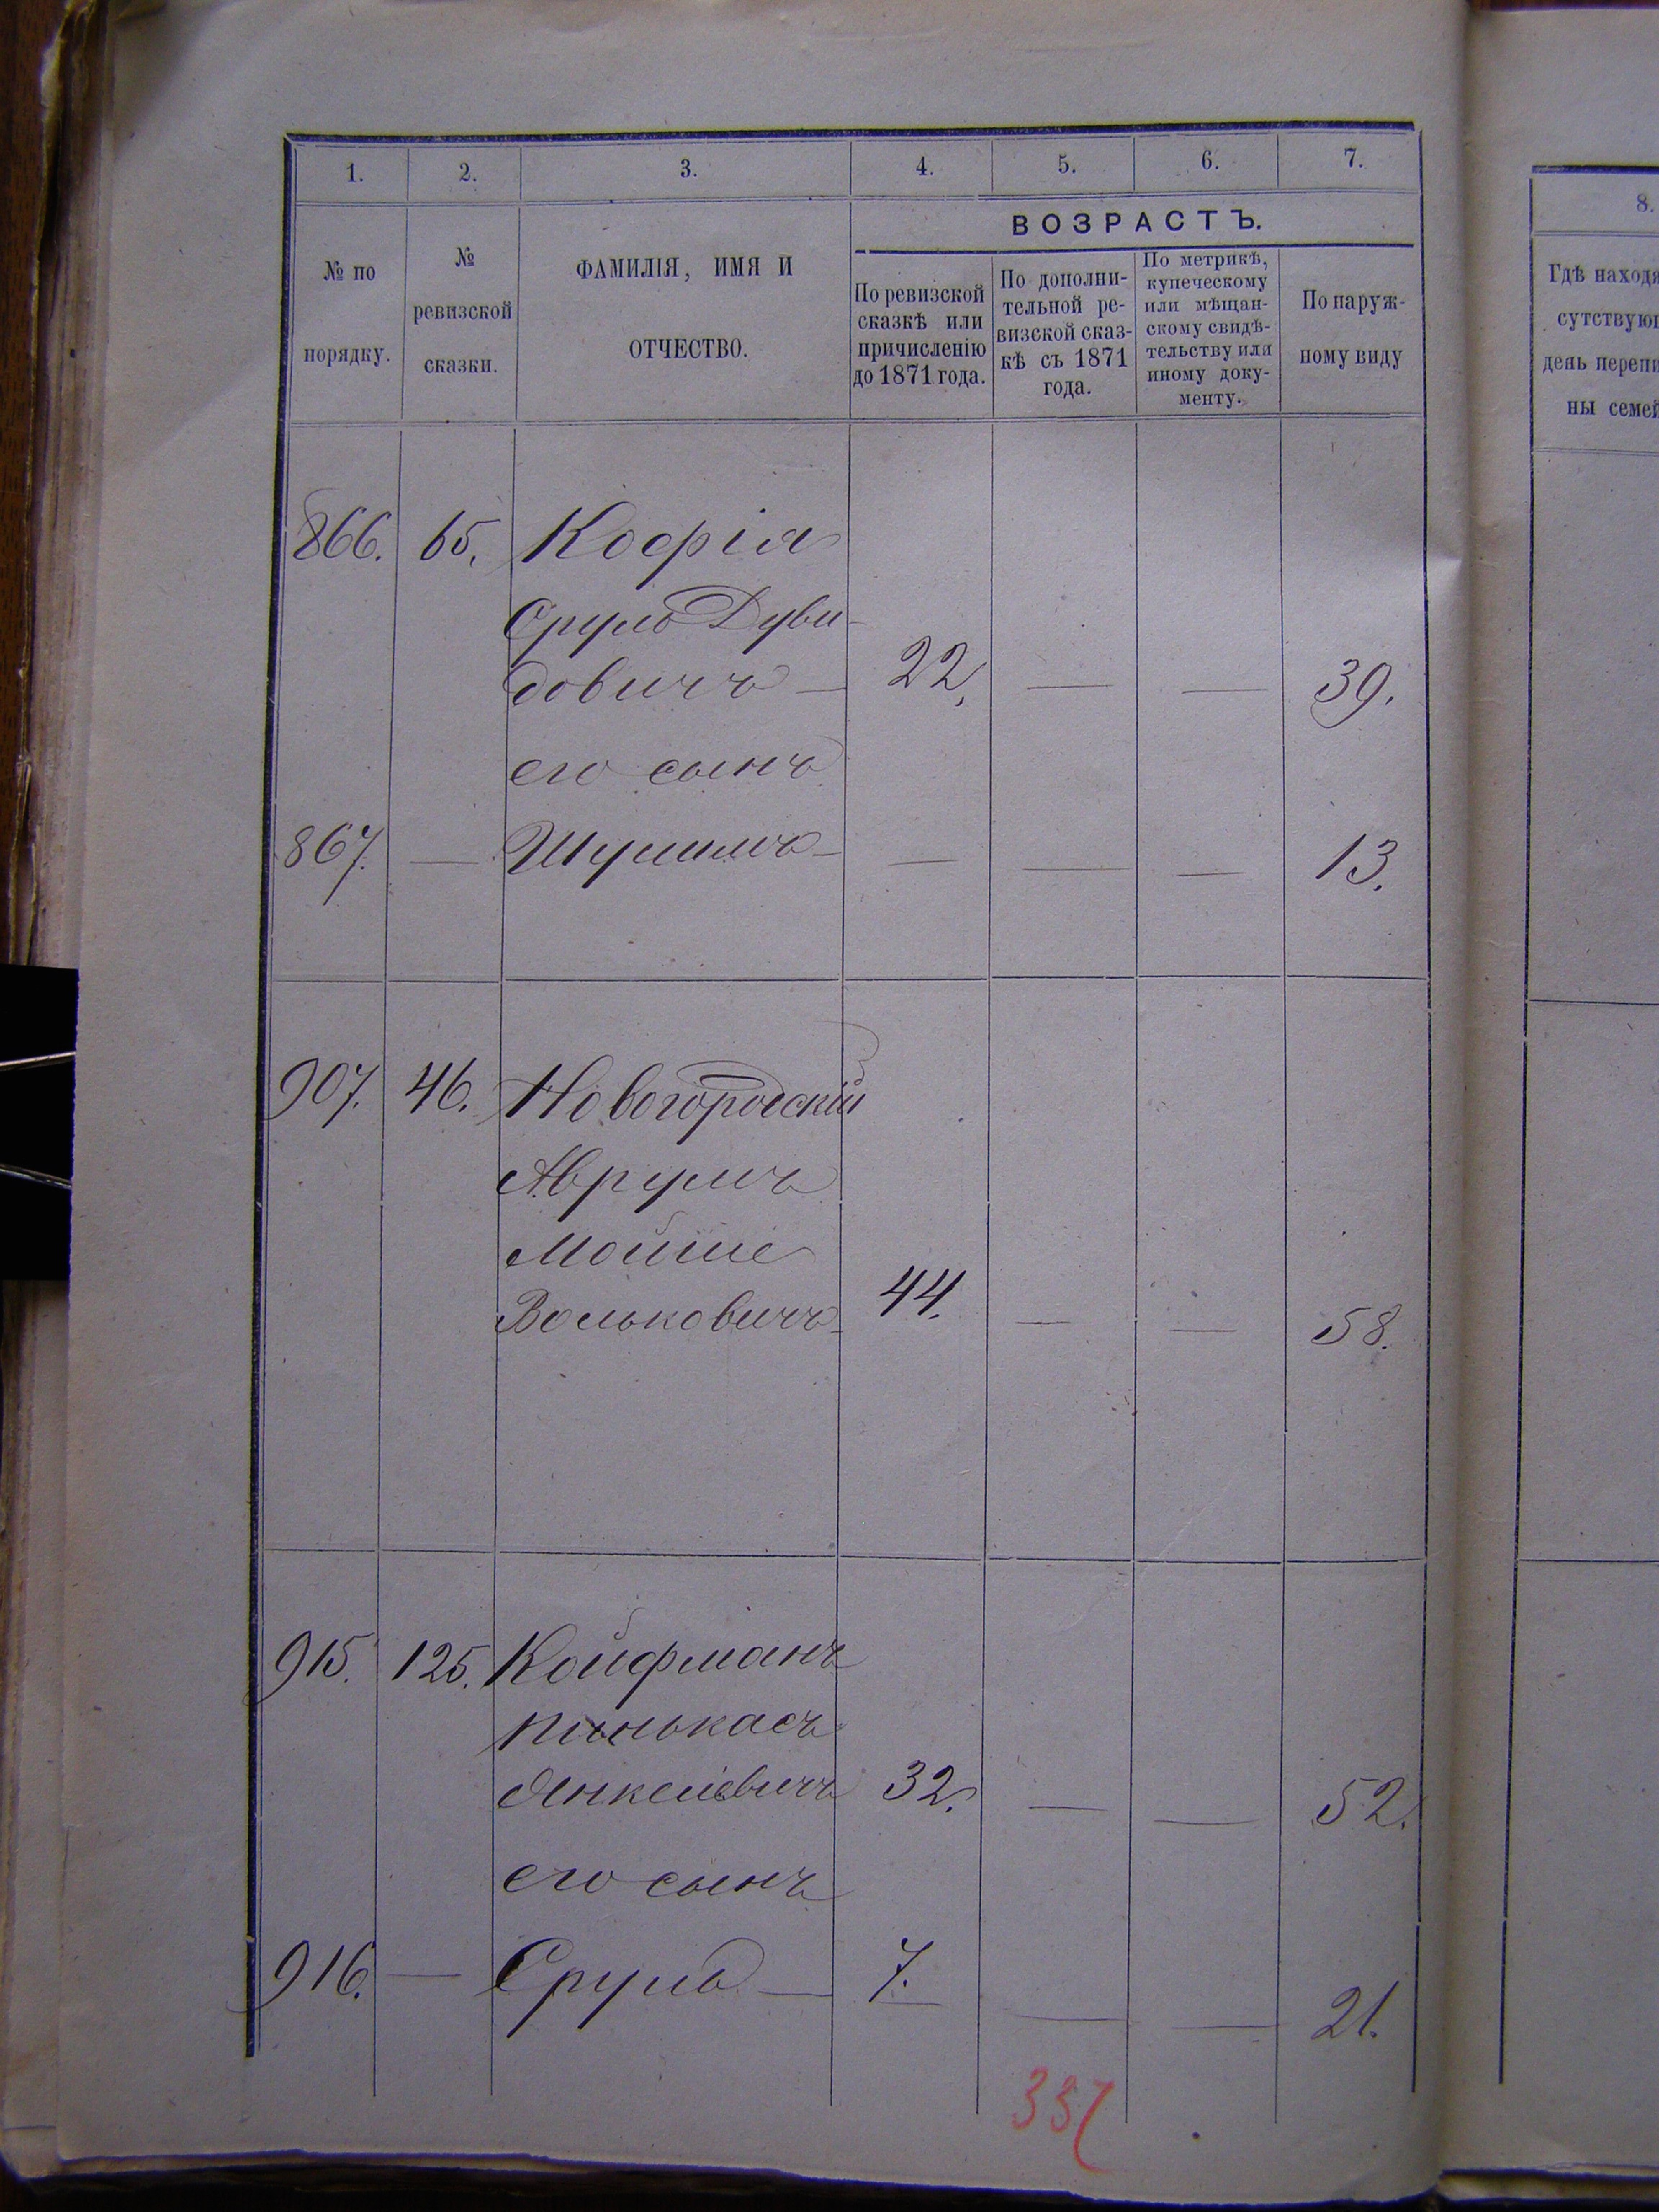 1. 2. 3. 4. 5. 6. 7.
8.
№ по порядку.
№ ревизской сказки.
ФАМИЛІЯ, ИМЯ И
ОТЧЕСТВО.
ВОЗРАСТЪ.
По ревизской
сказкѣ или
причисленію
до 1871 года.
По дополни-
тельной ре-
визской сказ-
кѣ съ 1871
года.
По метрикѣ,
купеческому
или мѣщан-
скому свидѣ-
тельству или
иному доку-
менту.
По наруж-
ному виду
Гдѣ находя
сутствую
день перепи
ны семей
866. 65. Кофія
Сруль Дуви-
довичъ — 22. — — 39.
его сынъ
867. — Шулимъ — — — — 13.
907. 46. Новогородскій
Аврумъ
Мойше
Вольковичъ 44. — — 58.
915. 125. Койфманъ
Пинькасъ
Янкелевичъ 32. — — 52.
его сынъ
916. — Сруль — 7. — — 21.
337